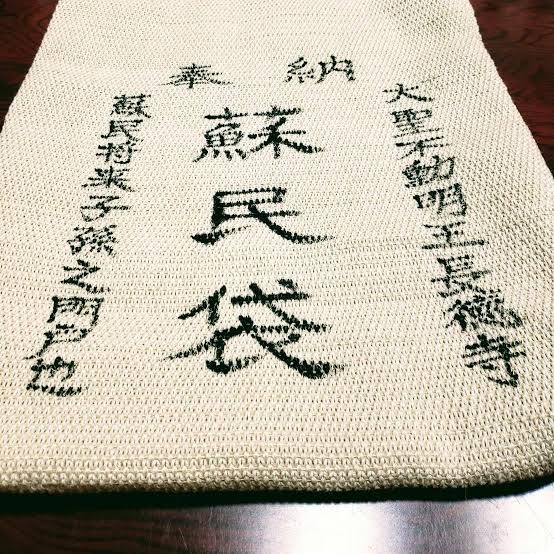 奉納
大聖不動明王長徳寺
蘇民袋
蘇民将来子孫之門戸也